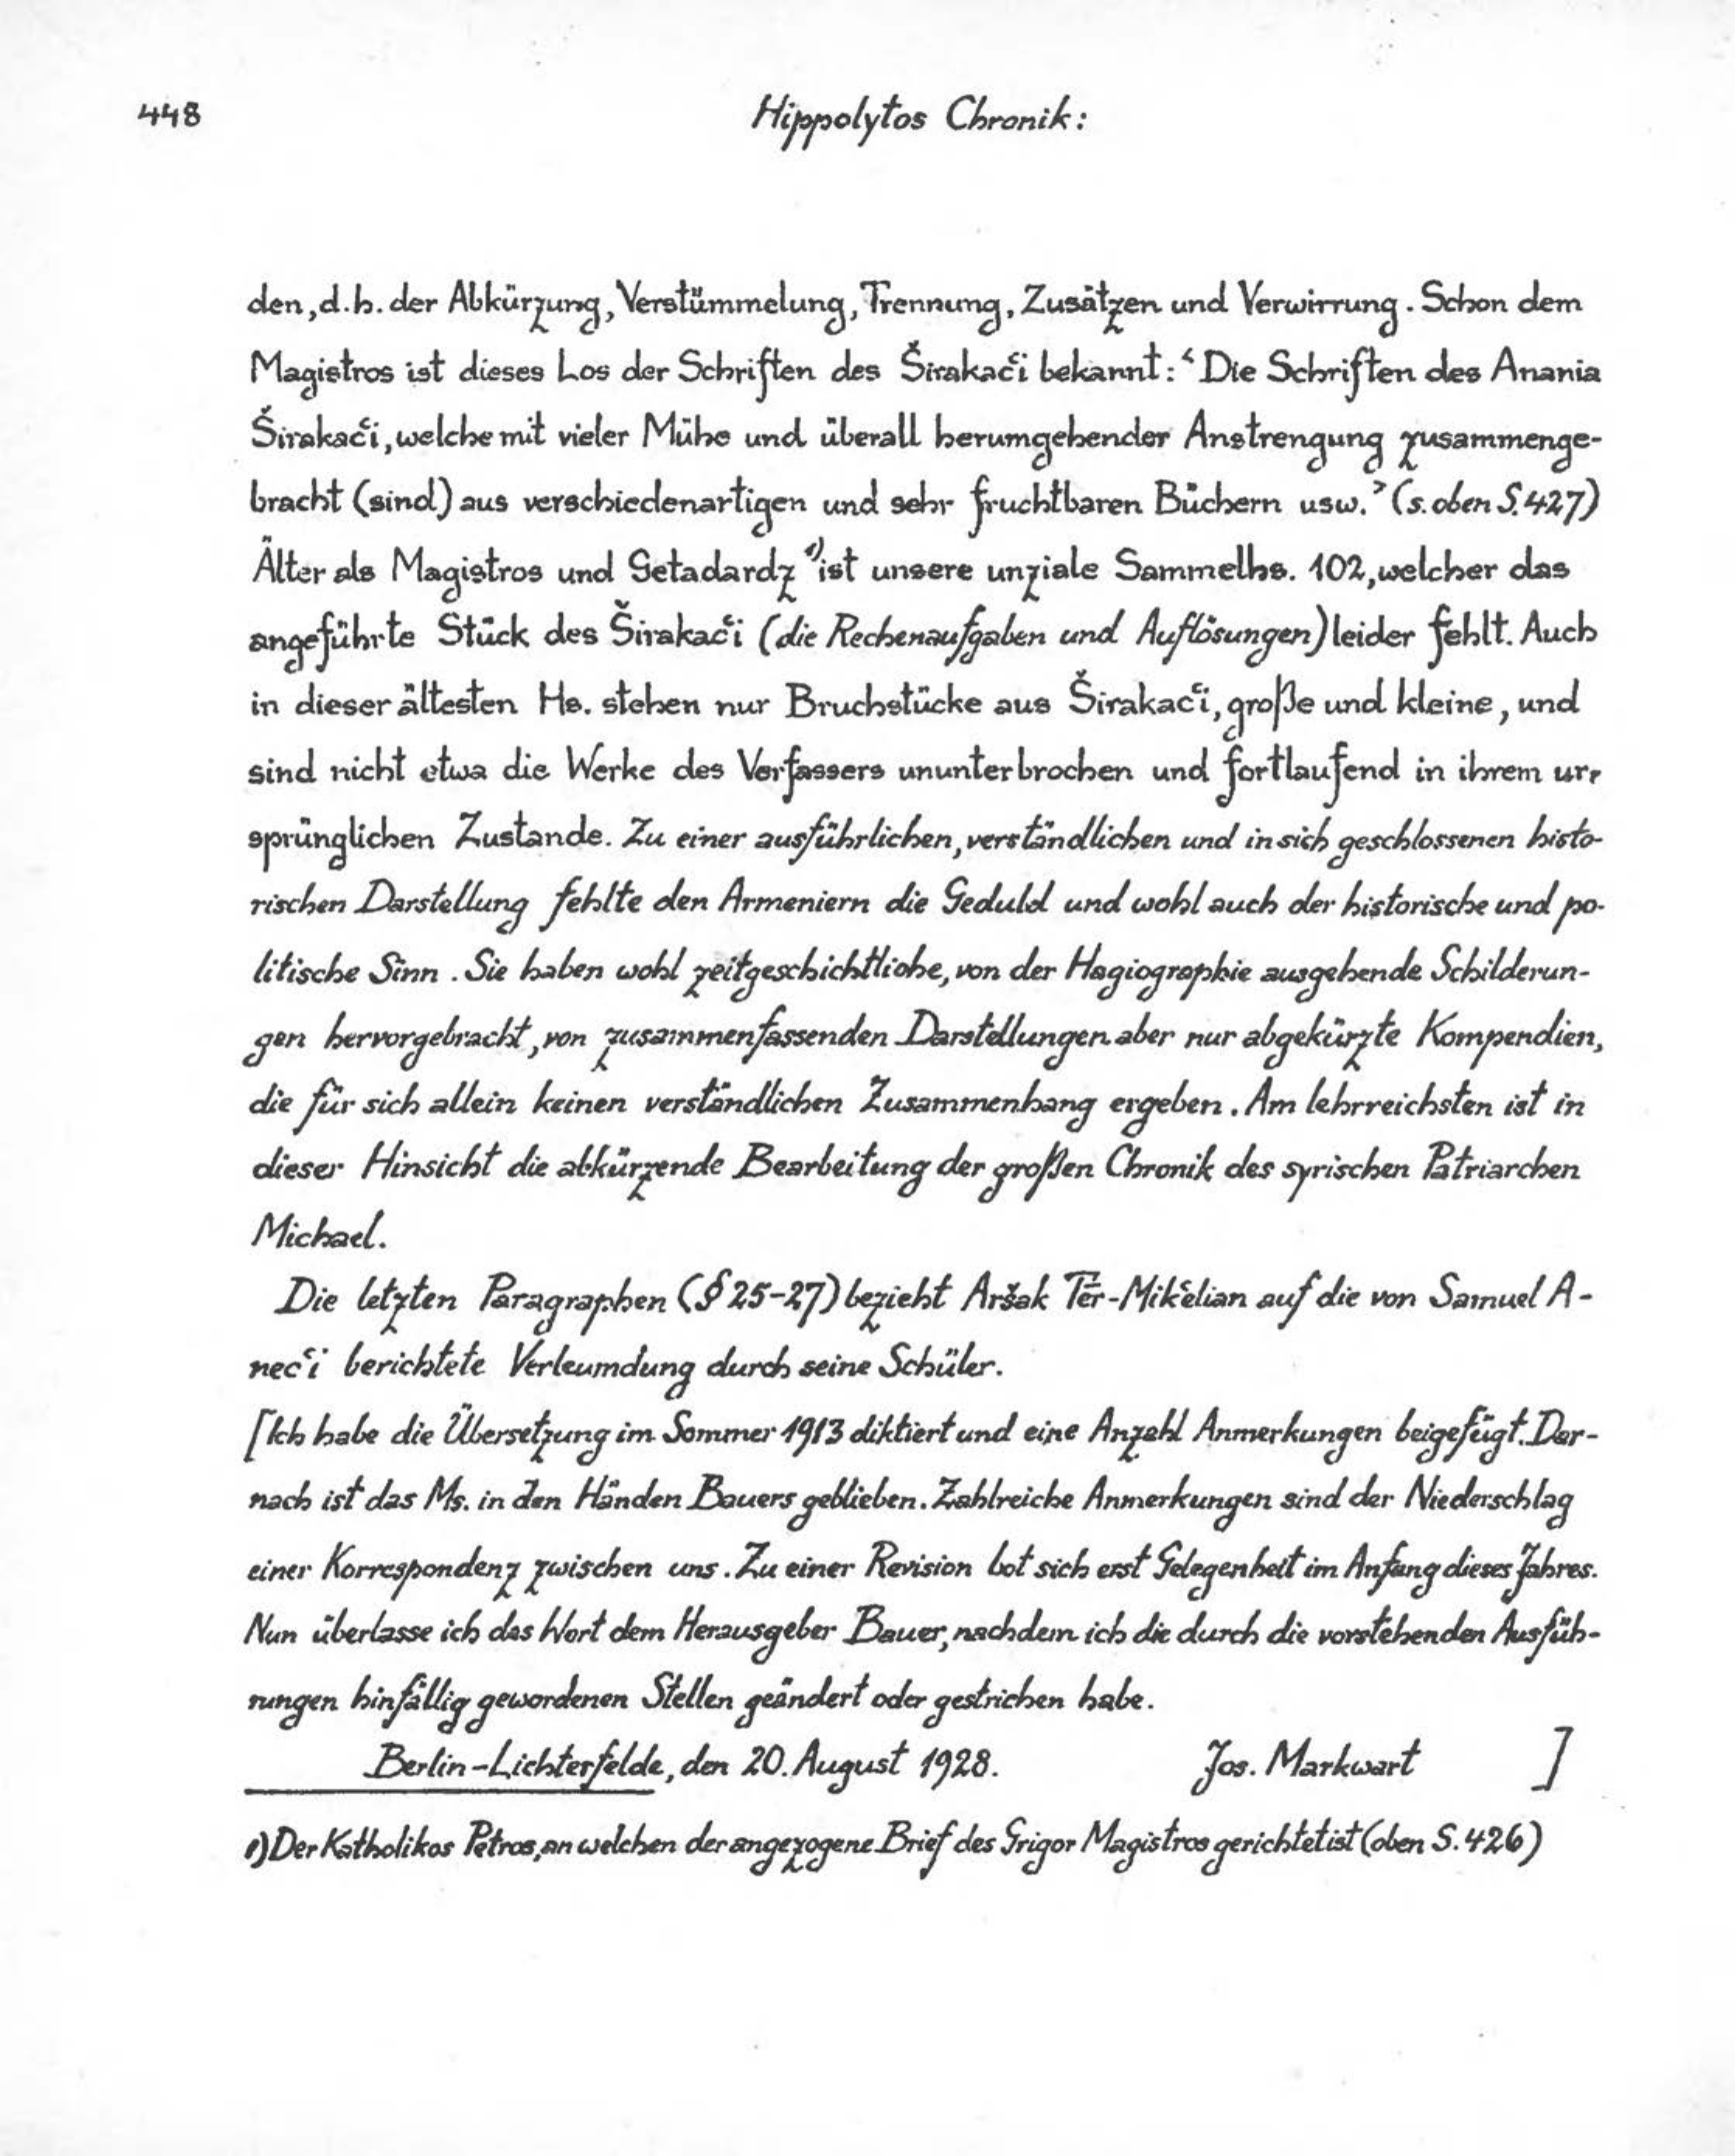 448
Hippolytos Chronik:
den, d.h. der Abkürzung, Verstümmelung, Trennung, Zusätzen und Verwirrung. Schon dem
Magistros ist dieses Los der Schriften des Širakacʿi bekannt: ‘Die Schriften des Anania
Širakacʿi, welche mit vieler Mühe und überall herumgehender Anstrengung zusammenge-
bracht (sind) aus verschiedenartigen und sehr fruchtbaren Büchern usw.’ (s. oben S. 427)
Älter als Magistros und Getadardz ¹⁾ ist unsere unziale Sammelhs. 102, welcher das
angeführte Stück des Širakacʿi (die Rechenaufgaben und Auflösungen) leider fehlt. Auch
in dieser ältesten Hs. stehen nur Bruchstücke aus Širakacʿi, große und kleine, und
sind nicht etwa die Werke des Verfassers ununterbrochen und fortlaufend in ihrem ur-
sprünglichen Zustande. Zu einer ausführlichen, verständlichen und in sich geschlossenen histo-
rischen Darstellung fehlte den Armeniern die Geduld und wohl auch der historische und po-
litische Sinn. Sie haben wohl zeitgeschichtliche, von der Hagiographie ausgehende Schilderun-
gen hervorgebracht, von zusammenfassenden Darstellungen aber nur abgekürzte Kompendien,
die für sich allein keinen verständlichen Zusammenhang ergeben. Am lehrreichsten ist in
dieser Hinsicht die abkürzende Bearbeitung der großen Chronik des syrischen Patriarchen
Michael.
Die letzten Paragraphen (§ 25-27) bezieht Aršak Tēr-Mikʿelian auf die von Samuel A-
necʿi berichtete Verleumdung durch seine Schüler.
[Ich habe die Übersetzung im Sommer 1913 diktiert und eine Anzahl Anmerkungen beigefügt. Dar-
nach ist das Ms. in den Händen Bauers geblieben. Zahlreiche Anmerkungen sind der Niederschlag
einer Korrespondenz zwischen uns. Zu einer Revision bot sich erst Gelegenheit im Anfang dieses Jahres.
Nun überlasse ich das Wort dem Herausgeber Bauer, nachdem ich die durch die vorstehenden Ausfüh-
rungen hinfällig gewordenen Stellen geändert oder gestrichen habe.
Berlin-Lichterfelde, den 20. August 1928. Jos. Markwart ]
1) Der Katholikos Petros, an welchen der angezogene Brief des Grigor Magistros gerichtet ist (oben S. 426)